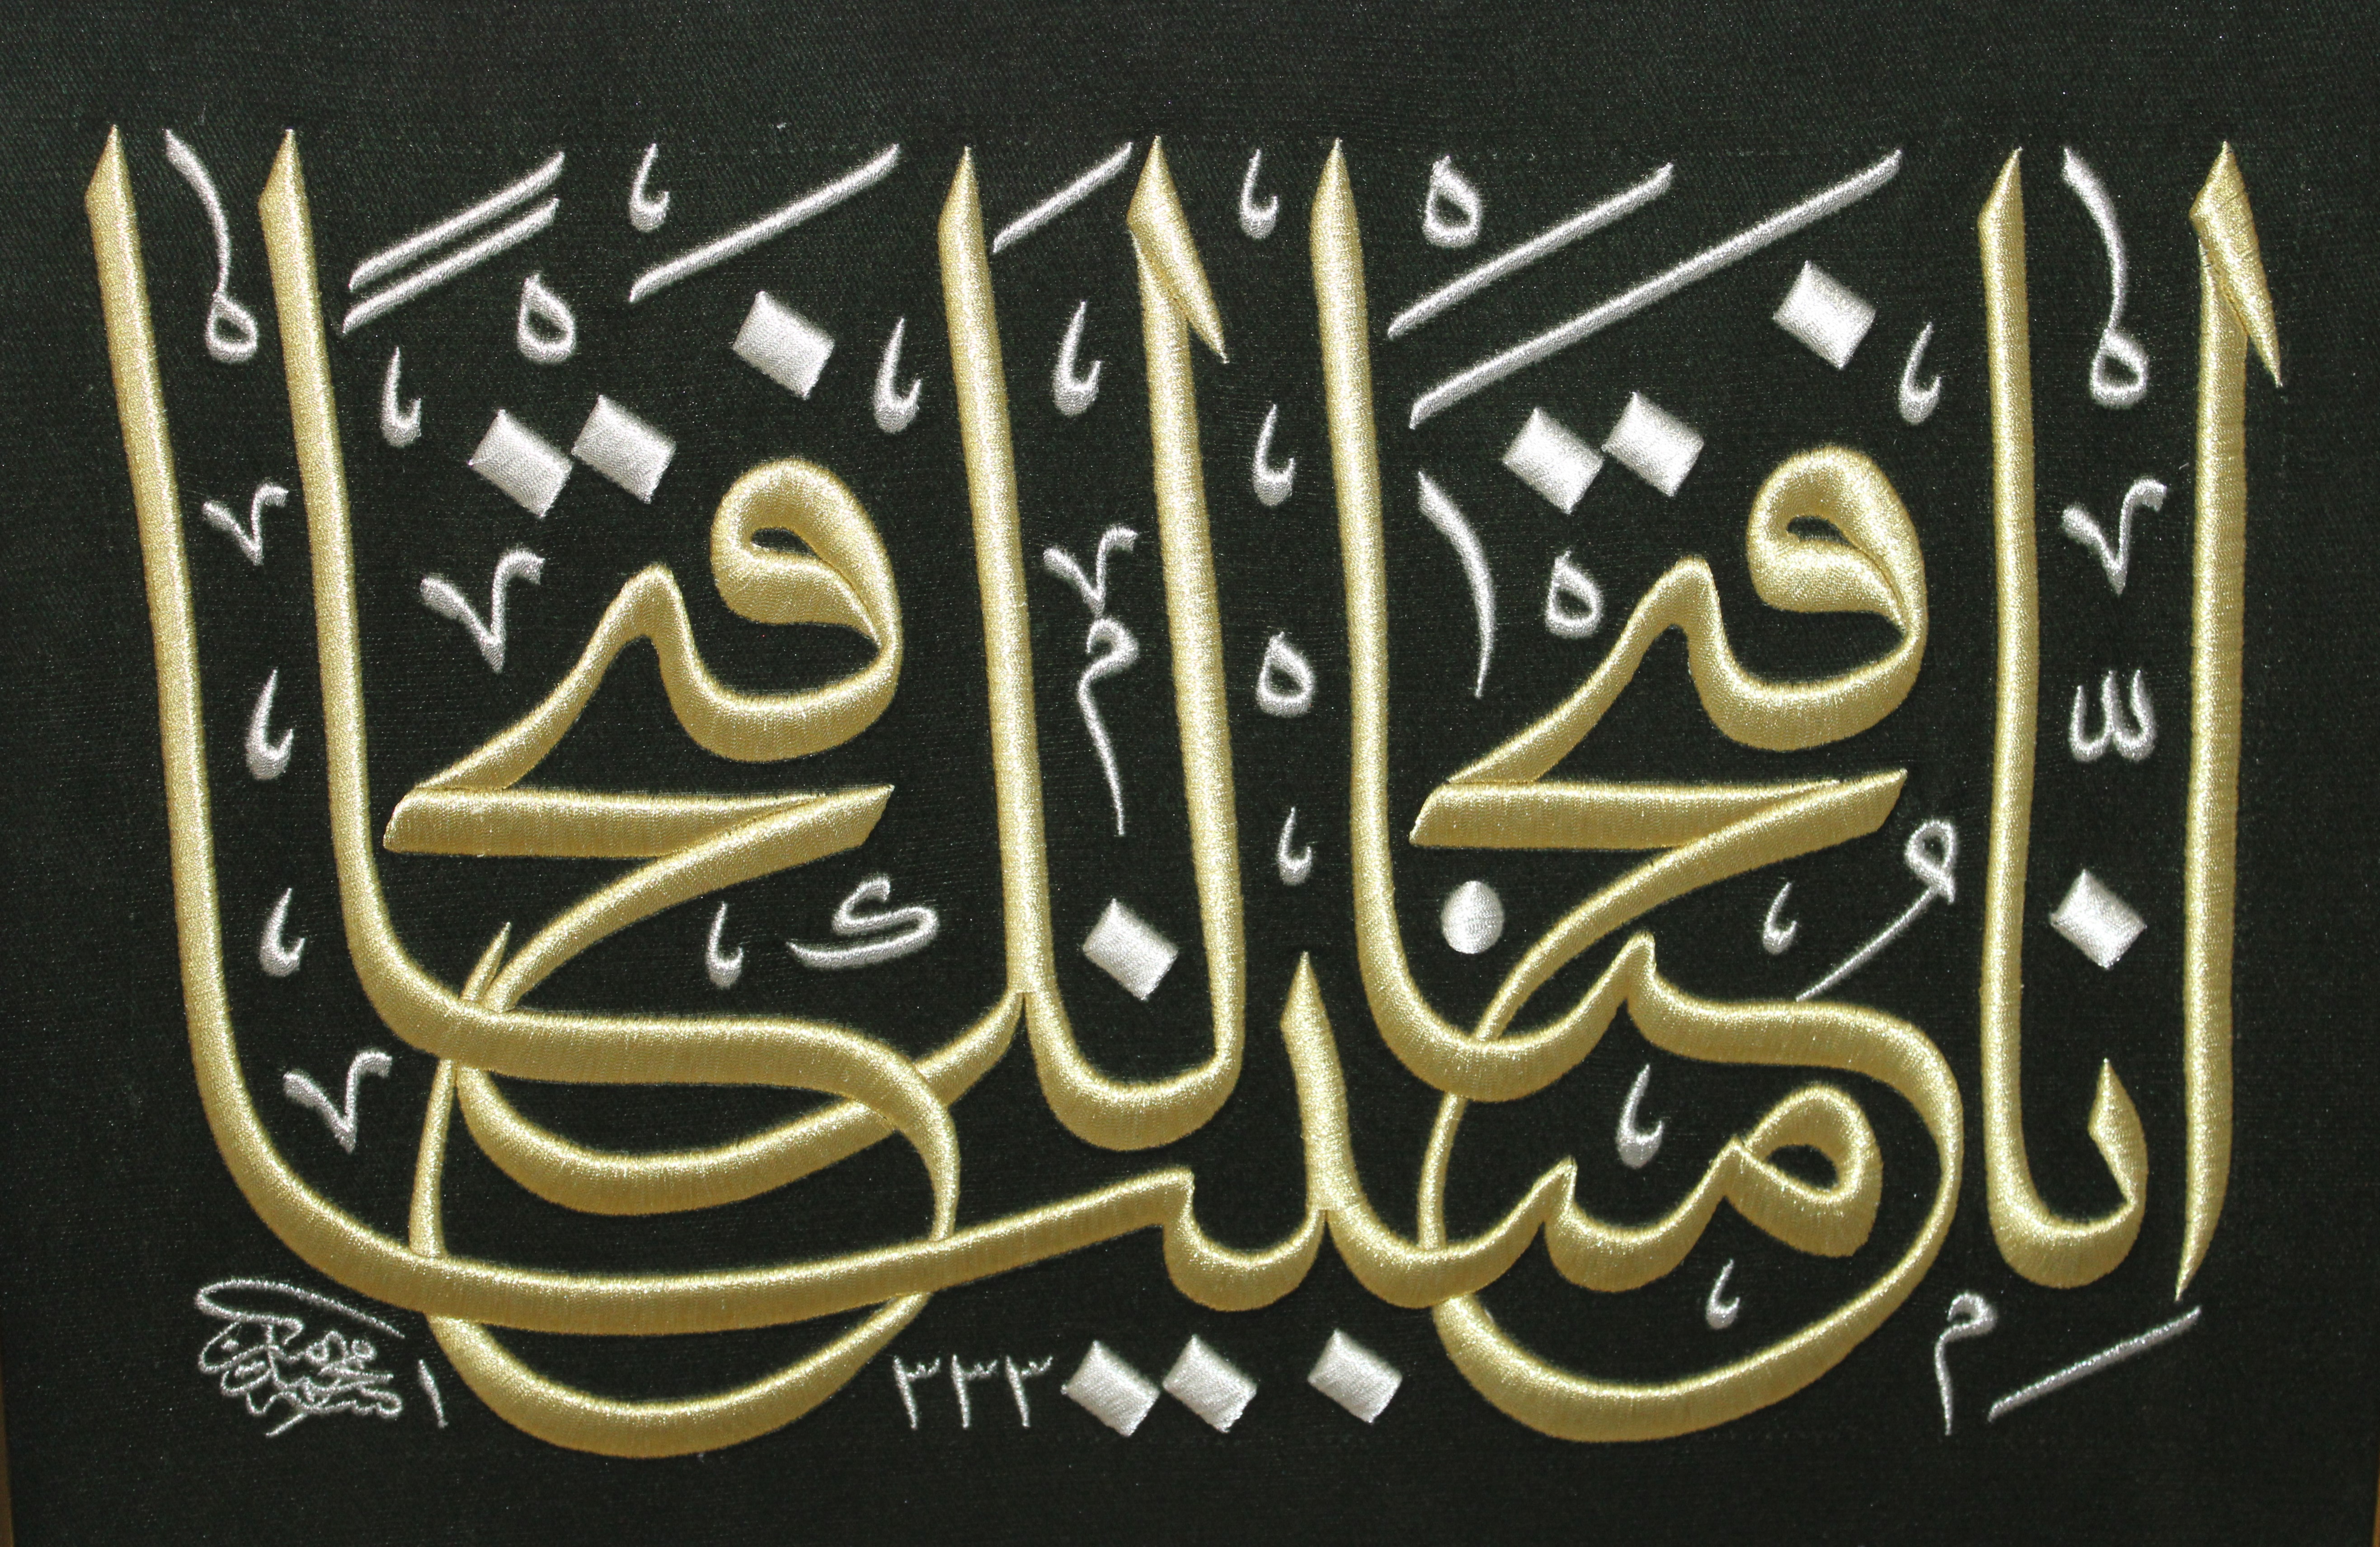 اِنَّا فَتَحْنَا لَكَ فَتْحًا مُّبِينًا
١٣٣٣